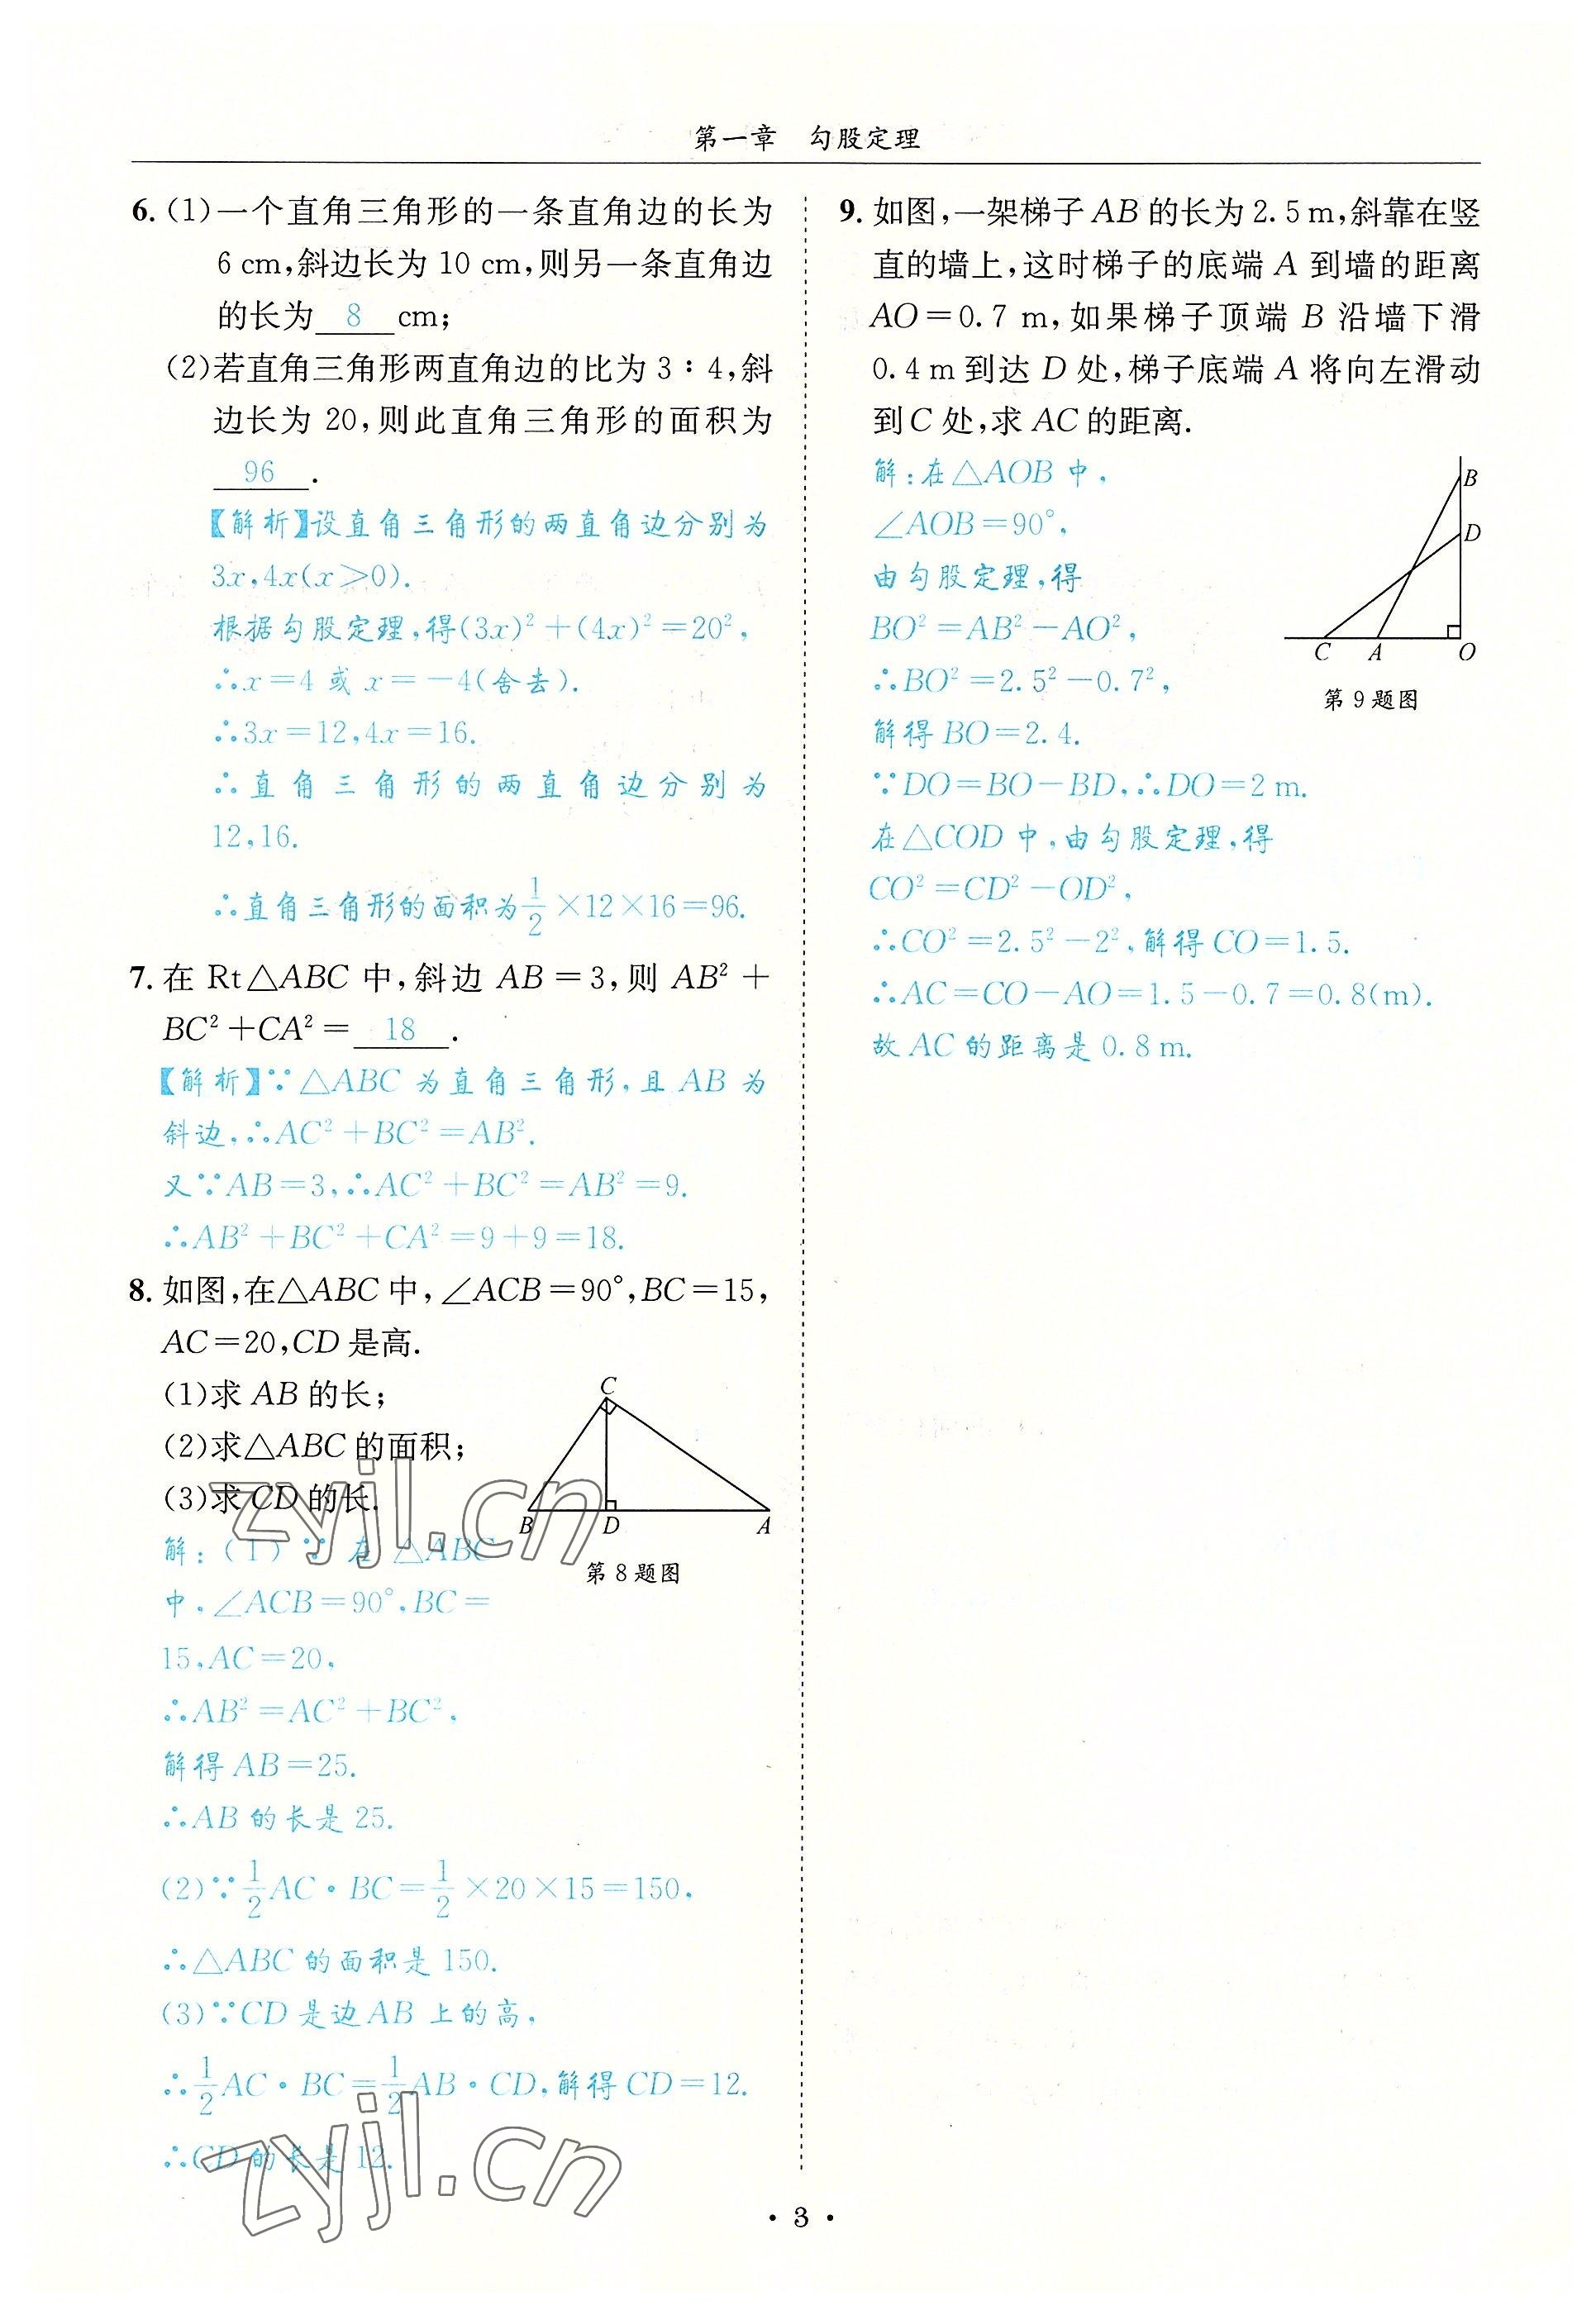 第一章 勾股定理
6. (1)一个直角三角形的一条直角边的长为
6 cm,斜边长为 10 cm,则另一条直角边
的长为 8 cm;
(2)若直角三角形两直角边的比为 3∶4,斜
边长为 20,则此直角三角形的面积为
96 .
【解析】设直角三角形的两直角边分别为
3x,4x(x>0).
根据勾股定理,得(3x)²+(4x)²=20²,
∴x=4 或 x=-4(舍去).
∴3x=12,4x=16.
∴直角三角形的两直角边分别为
12,16.
∴直角三角形的面积为1/2×12×16=96.
7. 在 Rt△ABC 中,斜边 AB=3,则 AB²+
BC²+CA²= 18 .
【解析】∵△ABC 为直角三角形,且 AB 为
斜边,∴AC²+BC²=AB².
又∵AB=3,∴AC²+BC²=AB²=9.
∴AB²+BC²+CA²=9+9=18.
8. 如图,在△ABC 中,∠ACB=90°,BC=15,
AC=20,CD 是高.
(1)求 AB 的长;
(2)求△ABC 的面积;
(3)求 CD 的长.
C
B D A
第 8 题图
解:(1)∵在△ABC
中,∠ACB=90°,BC=
15,AC=20,
∴AB²=AC²+BC²,
解得 AB=25.
∴AB 的长是 25.
(2)∵1/2AC·BC=1/2×20×15=150,
∴△ABC 的面积是 150.
(3)∵CD 是边 AB 上的高,
∴1/2AC·BC=1/2AB·CD,解得 CD=12.
∴CD 的长是 12.
9. 如图,一架梯子 AB 的长为 2.5 m,斜靠在竖
直的墙上,这时梯子的底端 A 到墙的距离
AO=0.7 m,如果梯子顶端 B 沿墙下滑
0.4 m 到达 D 处,梯子底端 A 将向左滑动
到 C 处,求 AC 的距离.
解:在△AOB 中,
∠AOB=90°,
由勾股定理,得
BO²=AB²-AO²,
∴BO²=2.5²-0.7²,
解得 BO=2.4.
B
D
C A O
第 9 题图
∵DO=BO-BD,∴DO=2 m.
在△COD 中,由勾股定理,得
CO²=CD²-OD²,
∴CO²=2.5²-2²,解得 CO=1.5.
∴AC=CO-AO=1.5-0.7=0.8(m).
故 AC 的距离是 0.8 m.
zyjl.cn
zyjl.cn
· 3 ·